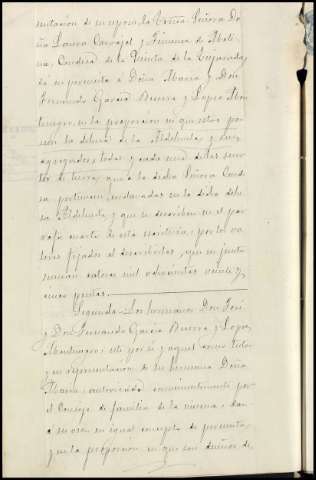 sentación de su esposa la Exma. Señora Do
ña Laura Carvajal y Jimenez de Moli
na, Condesa de la Quinta de la Enjarada,
da en permuta a Doña María y Don
Fernando García Becerra y Lopez Mon
tenegro, en la proporcion en que estos po
seen la dehesa de la Aldehuela y sus
agregados, todas y cada una de las suer
tes de tierra, que a la dicha Señora Conde
sa pertenecen, enclavadas en la dicha dehe
sa Aldehuela y que se describen en el par
rafo cuarto de esta escritura, por los va
lores fijados al describirlas, que en junto
suman catorce mil ochocientas veinte y
cinco pesetas.
Segunda. Los hermanos Don José
y Don Fernando García Becerra y Lopez
Montenegro, este por sí y aquel como tutor
y en representacion de su hermana Doña
María, autorizado convenientemente por
el Consejo de familia de la misma, dan a
su vez en igual concepto de permuta,
y en la proporcion en que son dueños de